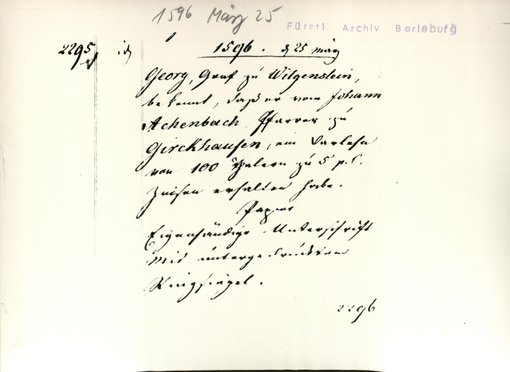 1596 März 25
Fürstl. Archiv Berleburg
2295
1596. d 25 März
Georg, Graf zu Witgenstein,
bekennt, daß er vom Johann
Achenbach, Pfarrer zu
Girckhausen, ein Darlehn
von 100 Thalern zu 5 p.c.
Zinsen erhalten habe.
Papier
Eigenhändige Unterschrift
mit untergedrücktem
Ringsiegel.
2296